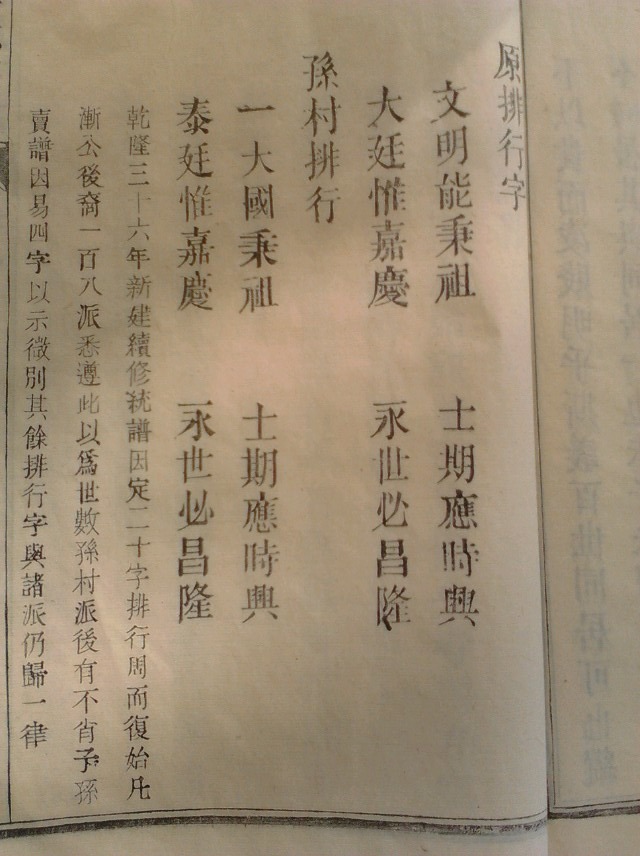 原排行字
文明能秉祖 士期應時興
大廷惟嘉慶 永世必昌隆
孫村排行
一大國秉祖 士期應時興
泰廷惟嘉慶 永世必昌隆
乾隆三十六年新建續修統譜因定二十字排行周而復始凡
漸公後裔一百八派悉遵此以爲世數孫村派後有不肖子孫
賣譜因易四字以示微別其餘排行字與諸派仍歸一律